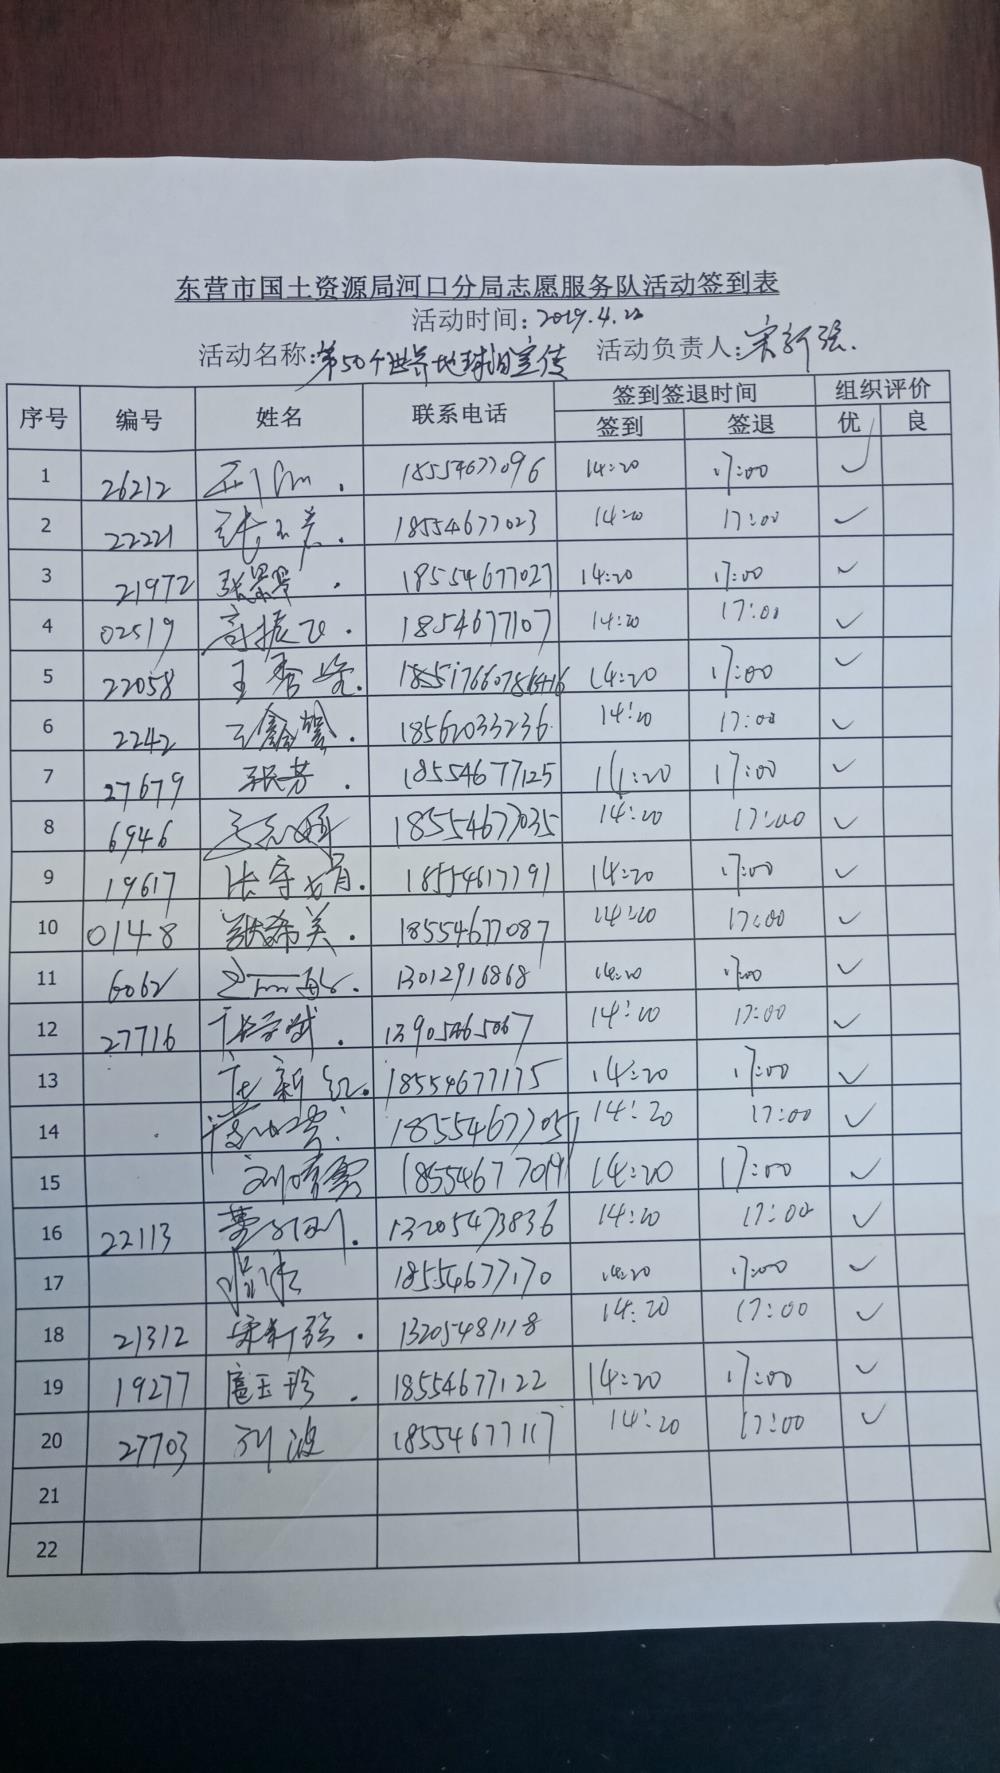 东营市国土资源局河口分局志愿服务队活动签到表
活动时间:2019.4.22
活动名称:第50个世界地球日宣传 活动负责人:宋新强.
序号 编号 姓名 联系电话 签到签退时间 组织评价
签到 签退 优 良
1 26212 18554677096 14:20 17:00 ✓
2 22221 18554677023 14:20 17:00 ✓
3 21972 张景军. 18554677027 14:20 17:00 ✓
4 02519 高振飞. 1854677107 14:20 17:00 ✓
5 22058 王秀 14:20 17:00 ✓
6 2242 王鑫 18562033236 14:20 17:00 ✓
7 27679 张芳. 18554677125 14:20 17:00 ✓
8 6946 18554677035 14:20 17:00 ✓
9 19617 张守 18554617791 14:20 17:00 ✓
10 0148 张希美. 18554677087 14:20 17:00 ✓
11 6062 13012916868 14:20 17:00 ✓
12 27716 14:20 17:00 ✓
13 新红. 18554677175 14:20 17:00 ✓
14 14:20 17:00 ✓
15 刘倩雪 14:20 17:00 ✓
16 22113 13205473836 14:20 17:00 ✓
17 18554677170 14:20 17:00 ✓
18 21312 宋新强. 13205481118 14:20 17:00 ✓
19 19277 扈玉珍. 18554677122 14:20 17:00 ✓
20 27703 刘波 18554677117 14:20 17:00 ✓
21
22